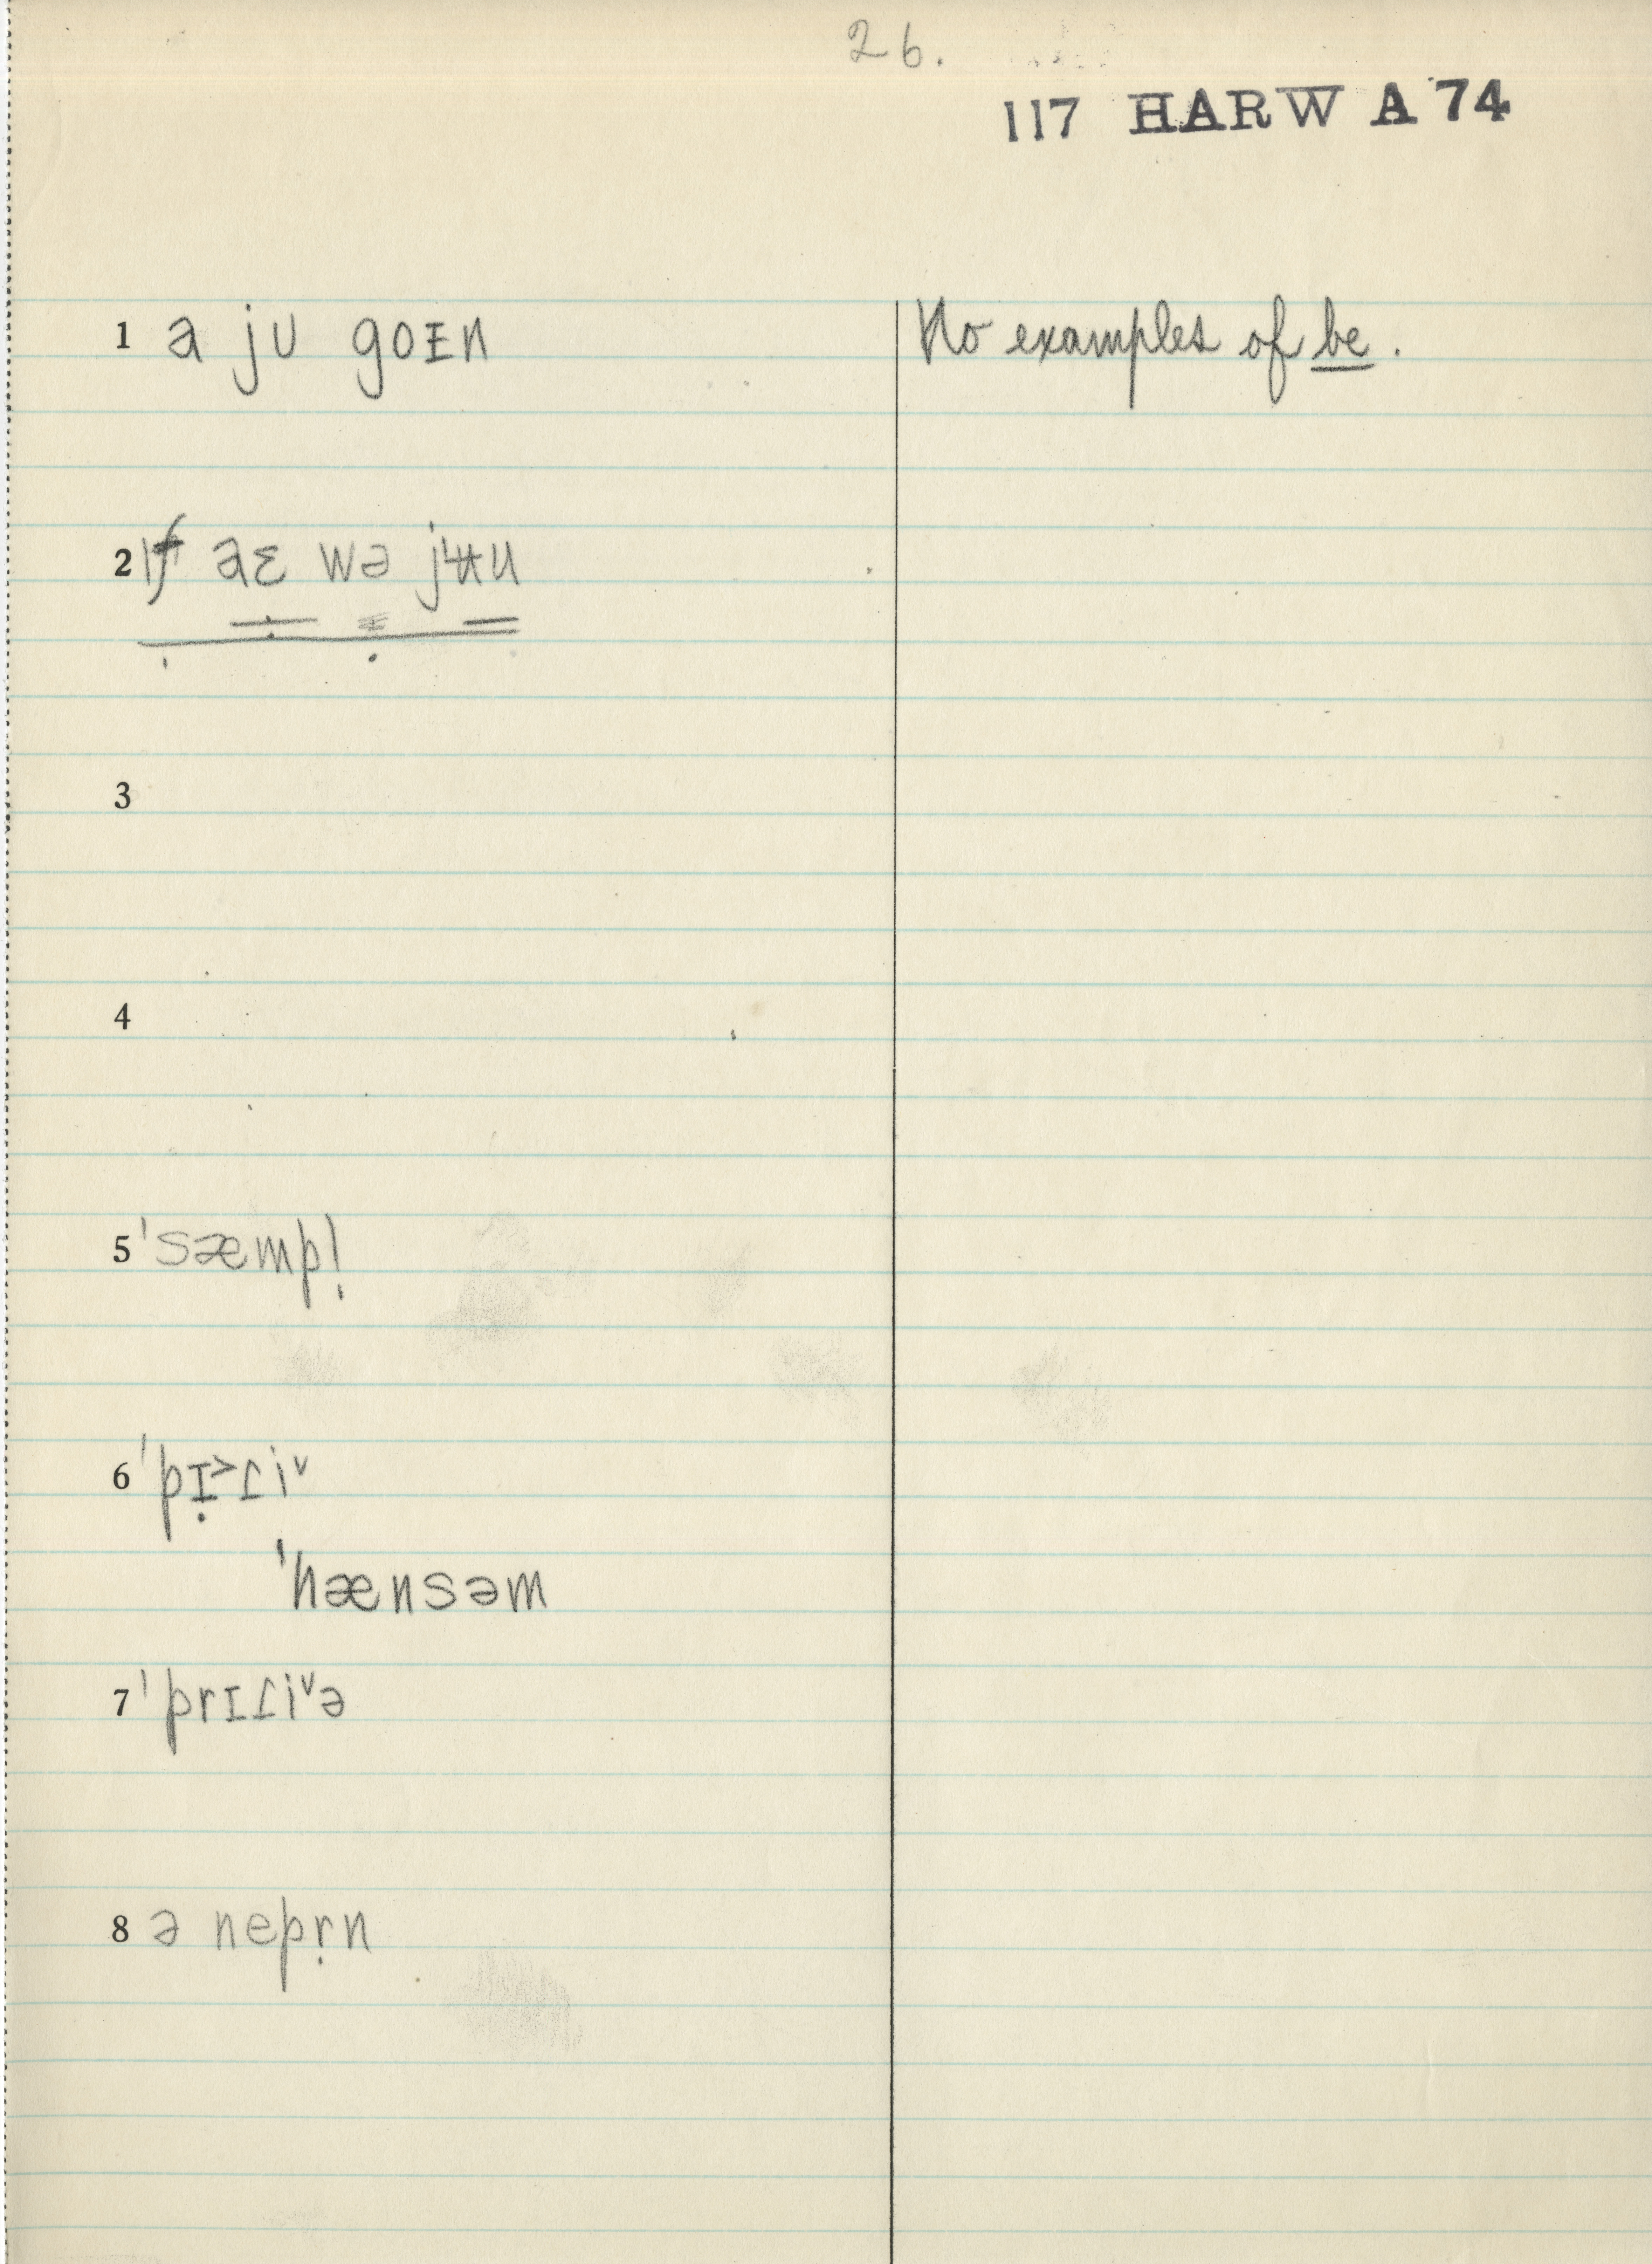 26.
117 HARW A 74
1 a ju goɪn
No examples of be.
2 ɪf aɛ wə jʉu
3
4
5 ˈsæmpl̩
6 ˈpɪ̣˃ɾi˅
ˈhænsəm
7 ˈprɪɾi˅ə
8 ə nepṛn